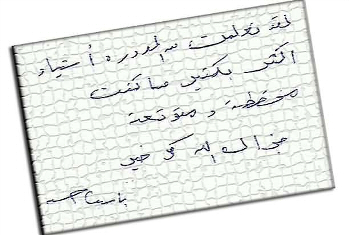 لقد تعلمت من الدورة أشياء
أكثر بكثير مما كنت
مخططة ومتوقعة
جزاك الله كل خير